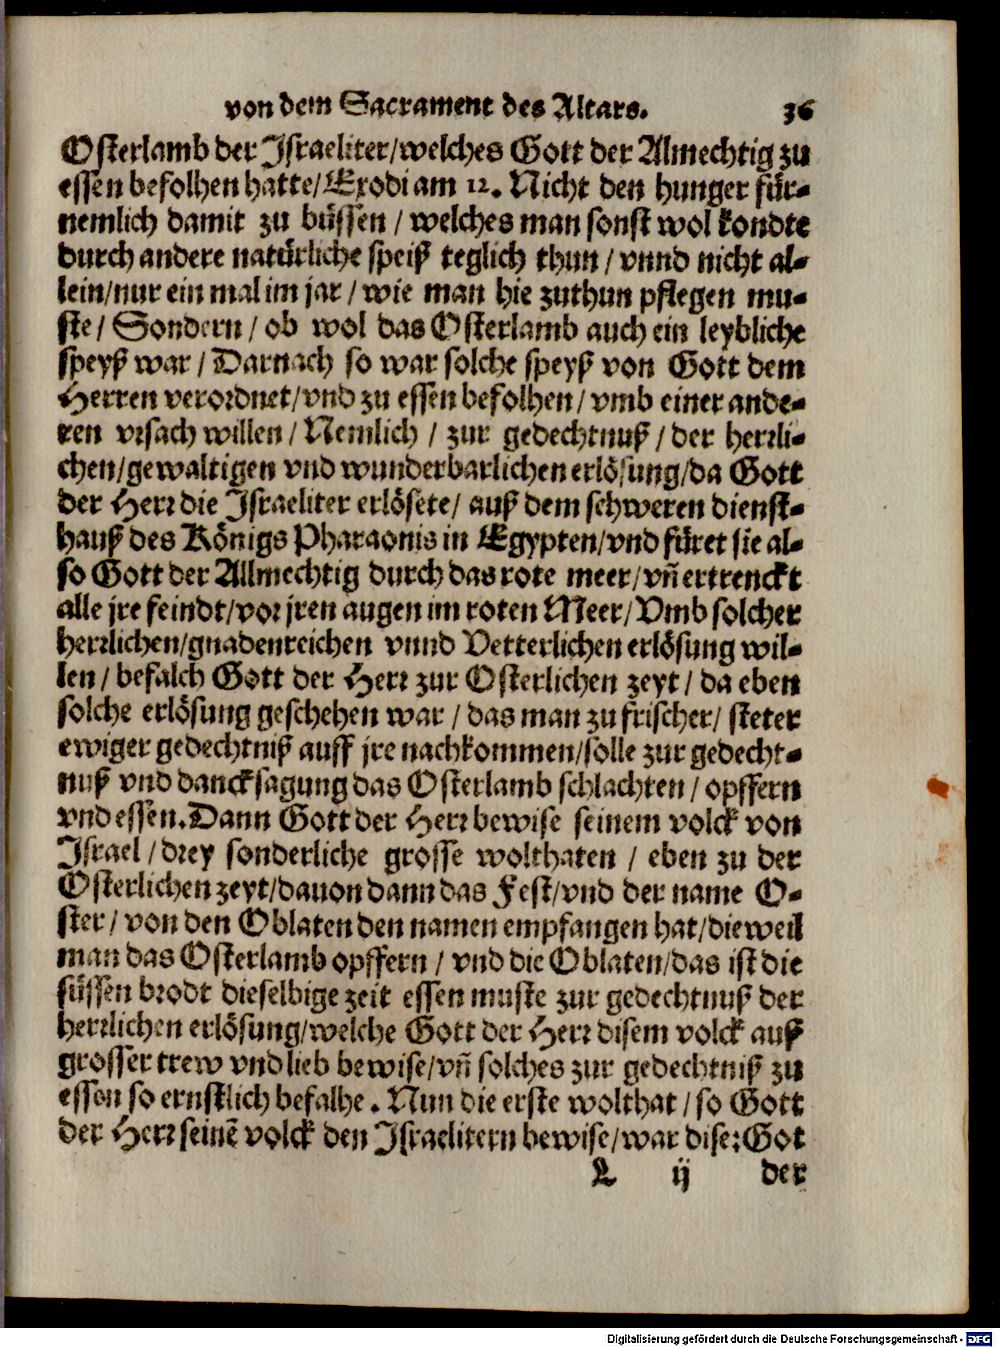 von dem Sacrament des Altars. 36
Osterlamb der Israeliter/welches Gott der Almechtig zu
essen befolhen hatte/Exodi am 12. Nicht den hunger für-
nemlich damit zu büssen / welches man sonst wol kondte
durch andere natürliche speiß teglich thun / vnnd nicht al-
lein/nur ein mal im jar / wie man hie zuthun pflegen mu-
ste / Sondern / ob wol das Osterlamb auch ein leybliche
speyß war / Darnach so war solche speyß von Gott dem
Herren verordnet/vnd zu essen befolhen / vmb einer ande-
ren vrsach willen / Nemlich / zur gedechtnuß / der herrli-
chen/gewaltigen vnd wunderbarlichen erlösung/da Gott
der Herr die Israeliter erlösete/ auß dem schweren dienst-
hauß des Königs Pharaonis in Egypten/vnd füret sie al-
so Gott der Allmechtig durch das rote meer/vñ ertrenckt
alle jre feindt/vor jren augen im roten Meer/Vmb solcher
herrlichen/gnadenreichen vnnd Vetterlichen erlösung wil-
len / befalch Gott der Herr zur Osterlichen zeyt / da eben
solche erlösung geschehen war / das man zu frischer/ steter
ewiger gedechtniß auff jre nachkommen/solle zur gedecht-
nuß vnd dancksagung das Osterlamb schlachten / opffern
vnd essen. Dann Gott der Herr bewise seinem volck von
Israel / drey sonderliche grosse wolthaten / eben zu der
Osterlichen zeyt/dauon dann das Fest/vnd der name O-
ster / von den Oblaten den namen empfangen hat/dieweil
man das Osterlamb opffern / vnd die Oblaten/das ist die
süssen brodt dieselbige zeit essen muste zur gedechtnuß der
herrlichen erlösung/welche Gott der Herr disem volck auß
grosser trew vnd lieb bewise/vñ solches zur gedechtniß zu
essen so ernstlich befalhe. Nun die erste wolthat / so Gott
der Herr seinē volck den Israelitern bewise/war dise: Got
L ij der
Digitalisierung gefördert durch die Deutsche Forschungsgemeinschaft - DFG